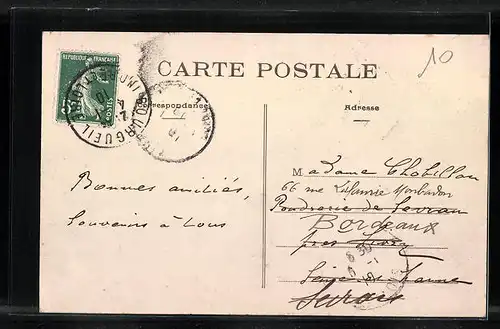 10
REPUBLIQUE FRANÇAISE
CARTE POSTALE
BOURGUEIL
Correspondance
Adresse
M Madame Chobillon
66 rue Lafaurie Monbadon
Poudrerie de Sevran
Bordeaux
près Livry
Seine et Marne
Bonnes amitiés,
Souvenirs à tous